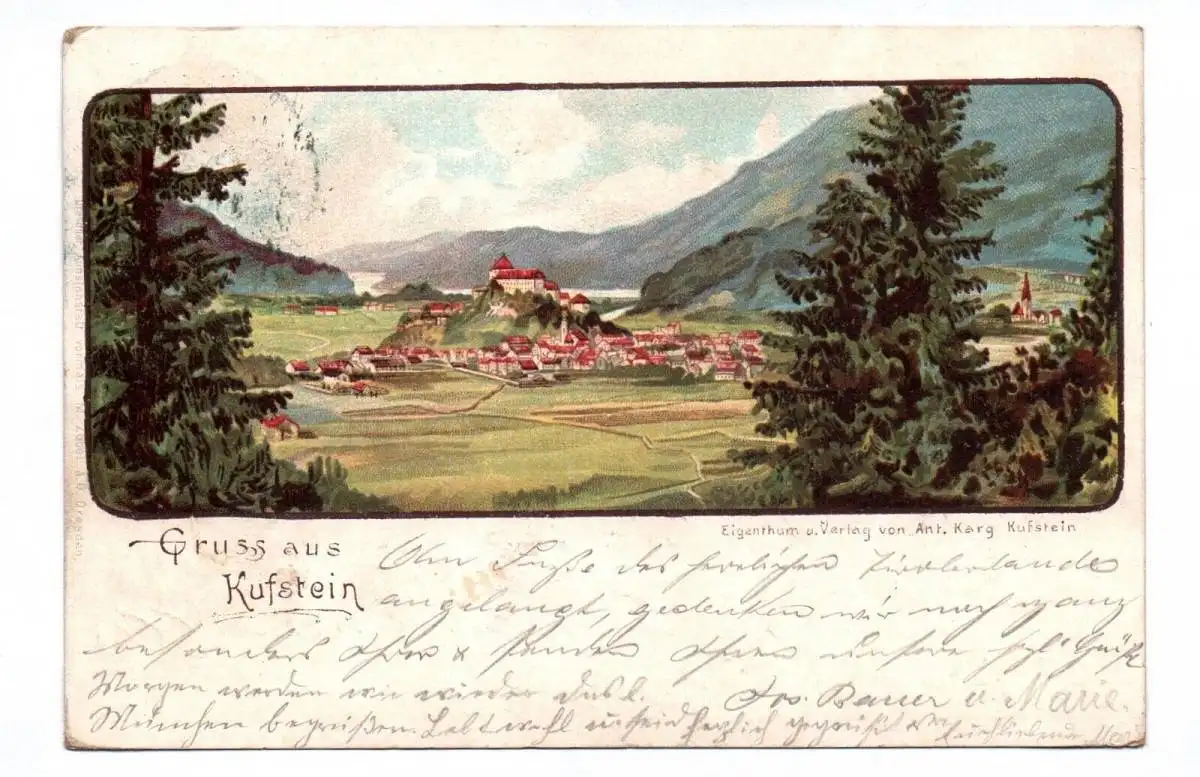 Eigenthum u. Verlag von Ant. Karg Kufstein
Gruss aus
Kufstein
Am Fuße des herrlichen Tirolerlandes
angelangt, gedenken wir noch ganz
besonders & senden unsere hzl. Grüße
Morgen werden wir wieder das l.
Jos. Bauer u. Marie.
München begrüßen. Lebt wohl u. seid herzlich gegrüßt